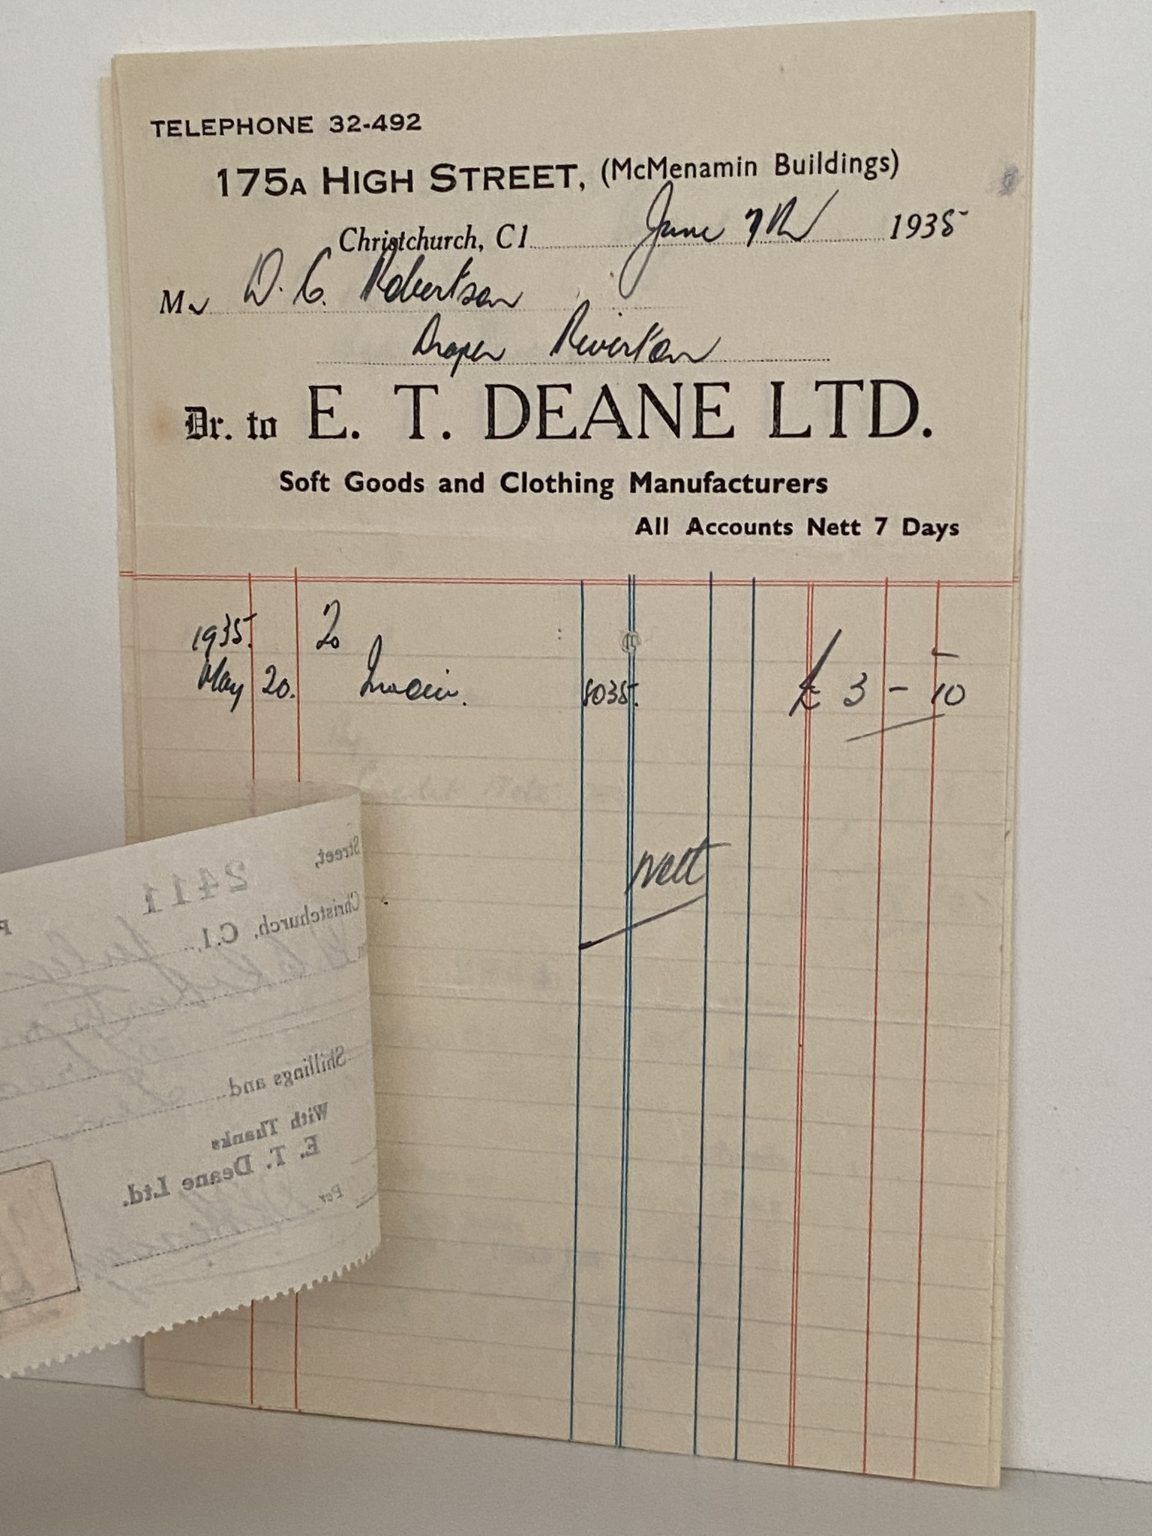 TELEPHONE 32-492
175A HIGH STREET, (McMenamin Buildings)
Christchurch, C1 June 7th 1935
Mr D. C. Robertson
Draper Riverton
Dr. to E. T. DEANE LTD.
Soft Goods and Clothing Manufacturers
All Accounts Nett 7 Days
1935. To
May 20. Invoice. 8035. £ 3 - 10
Nett
Street,
2411
Christchurch, C.1.
Shillings and
With Thanks
E. T. Deane Ltd.
Per